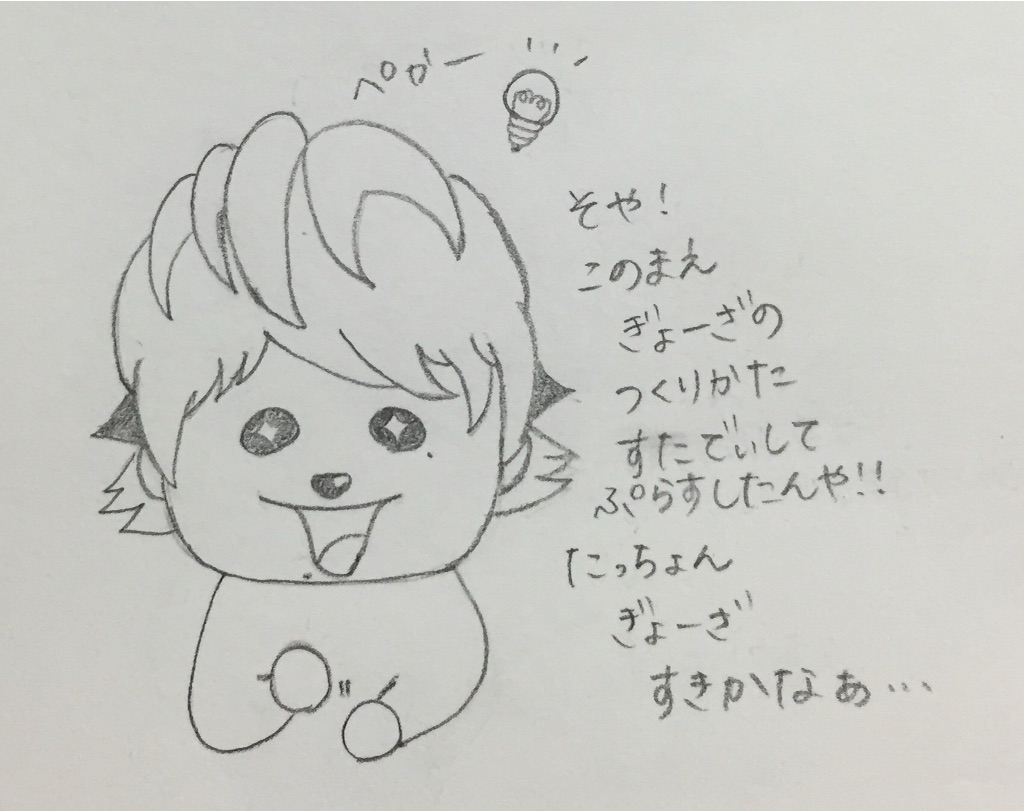 ペカー
そや!
このまえ
ぎょーざの
つくりかた
すたでぃして
ぷらすしたんや!!
たっちょん
ぎょーざ
すきかなぁ…